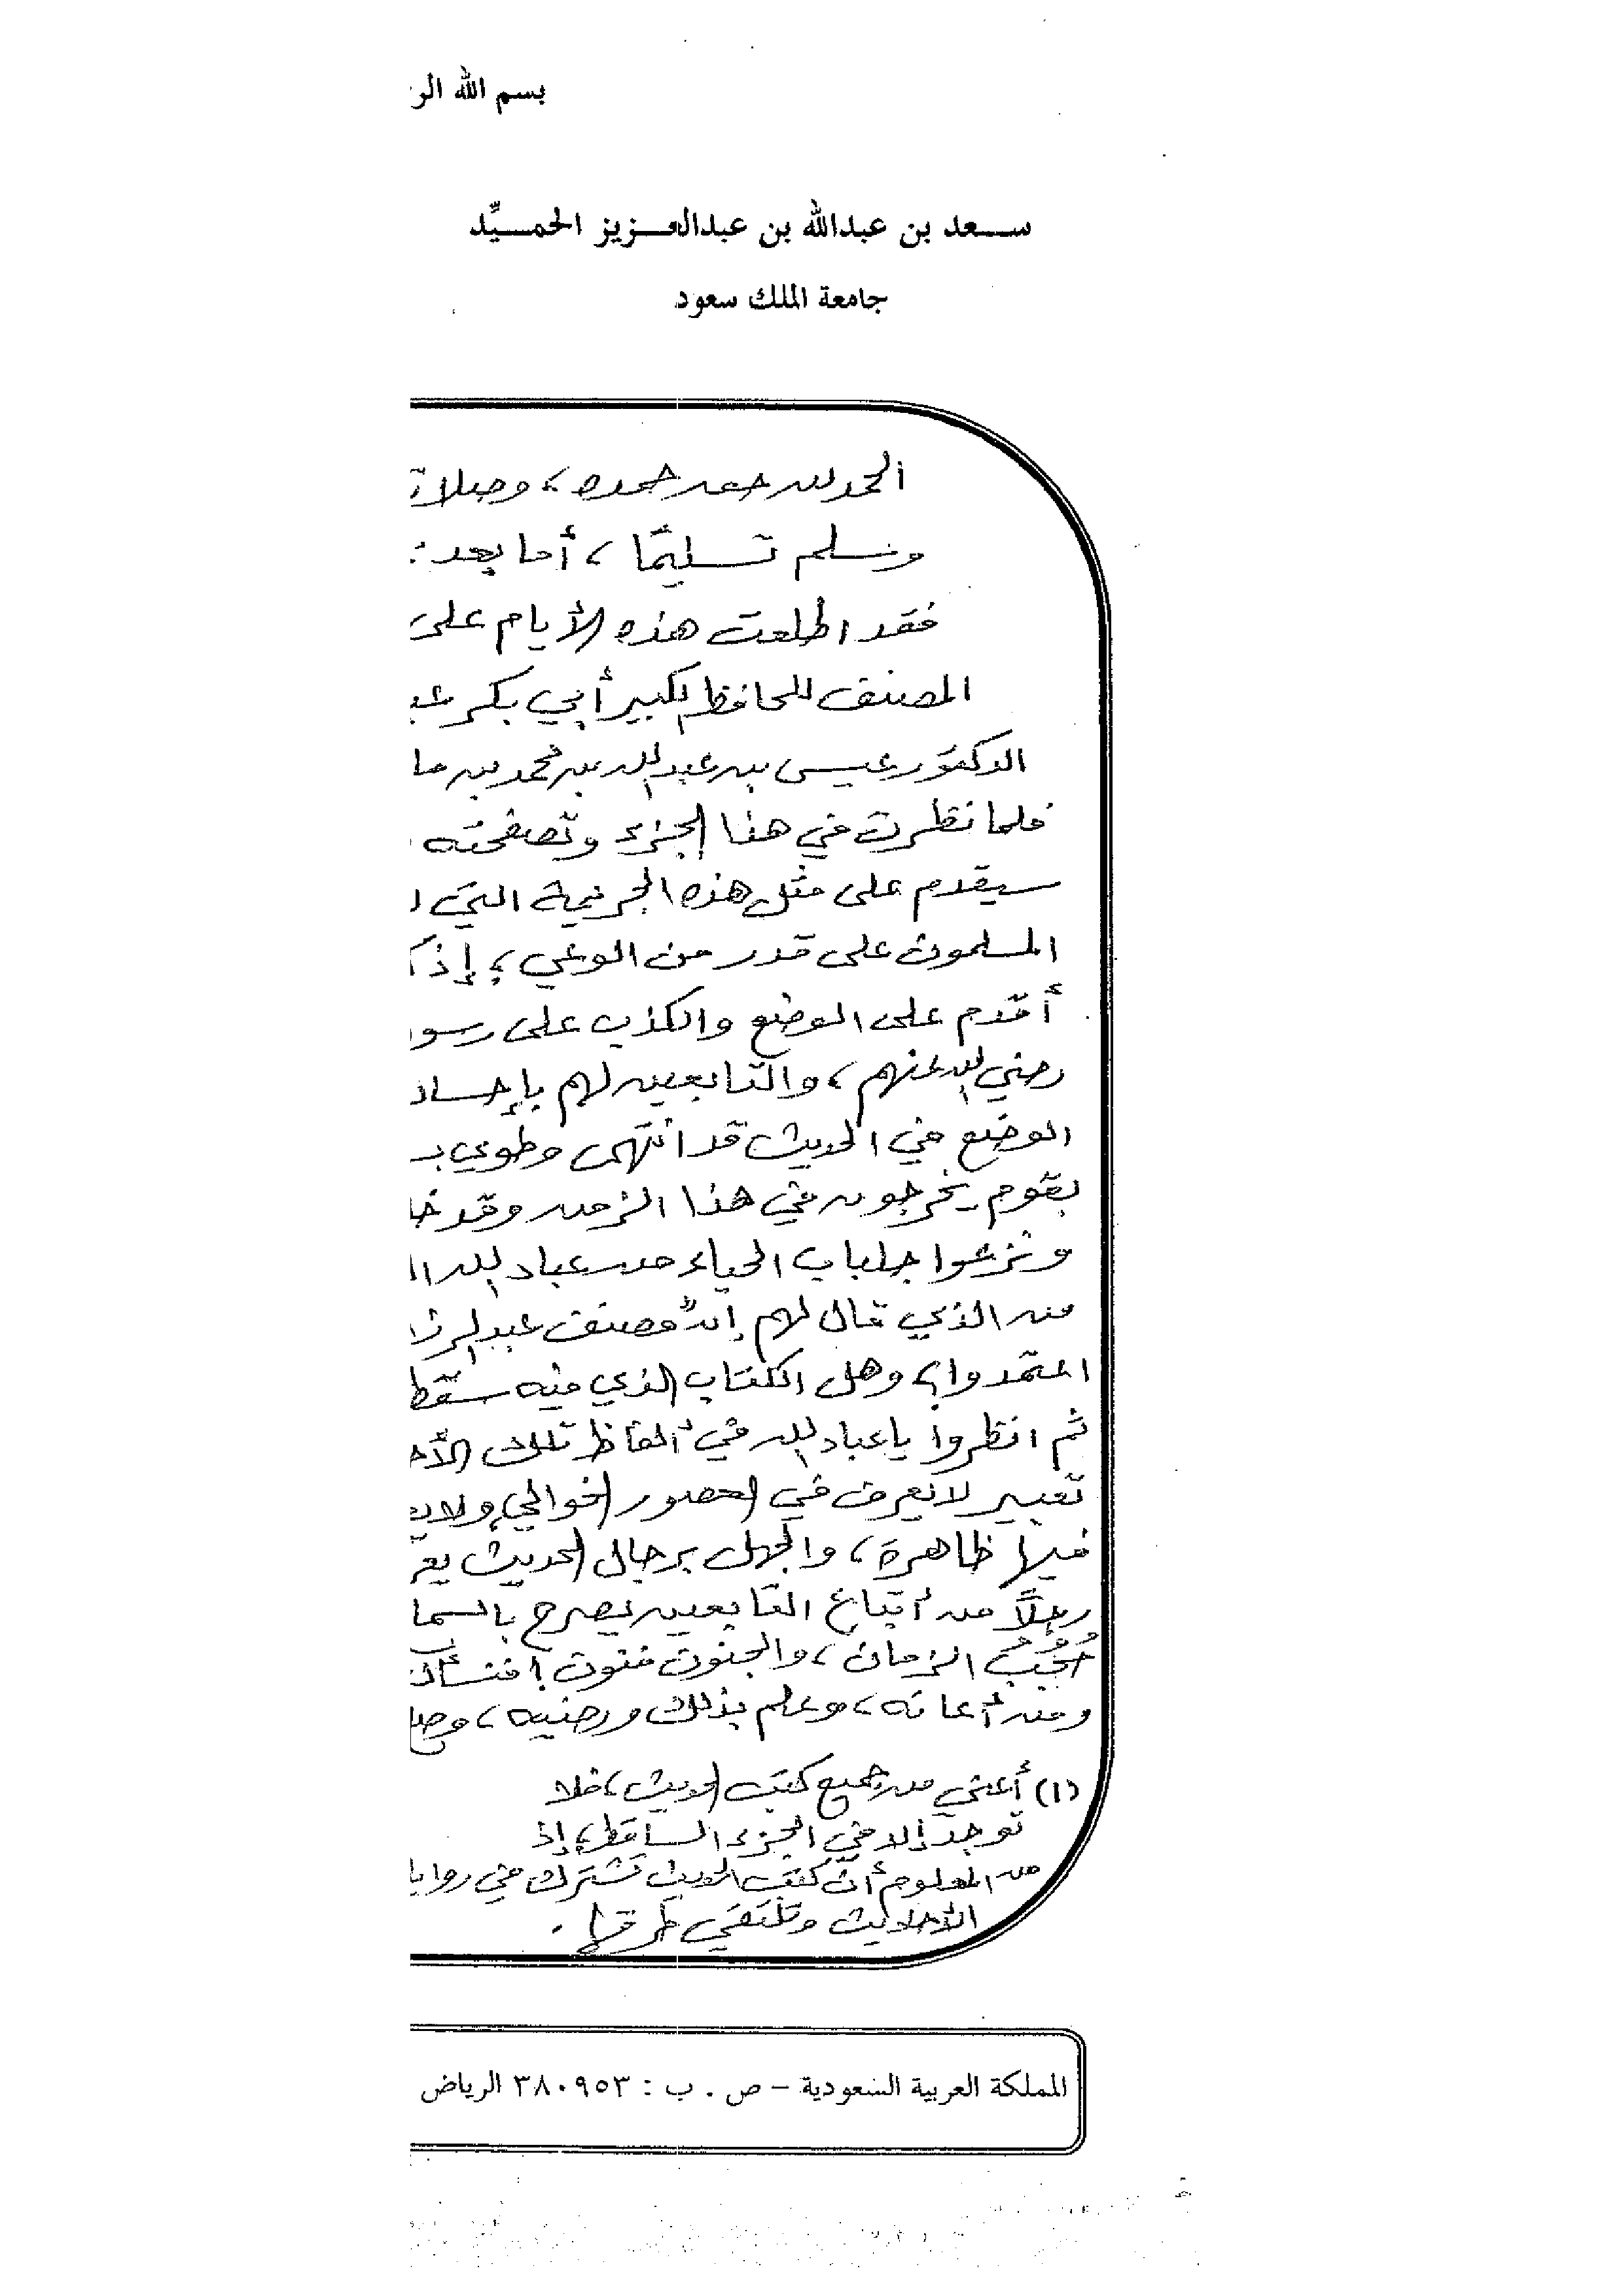 بسم الله الر
سعد بن عبدالله بن عبدالعزيز الحميّد
جامعة الملك سعود
الحمد لله حمد حمده، وصلاة
وسلم تسليمًا، أما بعد:
فقد اطلعت هذه الأيام على
المصنف للحافظ الكبير أبي بكر عبـ
الدكتور عيسى بن عبدالله بن محمد بن ما
فلما نظرت في هذا الجزء وتصفحته
سيقدم على مثل هذه الجريمة التي ا
المسلمون على قدر من الوعي، إذ
أقدم على الوضع والكذب على رسو
رضي الله عنهم، والتابعين لهم بإحسا
الوضع في الحديث قد انتهى وطوي بـ
بقوم يخرجون في هذا الزمن وقد خا
ونزعوا جلباب الحياء من عباد الله ا
من الذي قال لهم إن مصنف عبدالرزا
اعتمدوا؟ وهل الكتاب الذي فيه سقط
ثم انظروا يا عباد الله في ألفاظ تلك الأ
تعبير لا يعرف في العصور الخوالي، ولا يـ
فيها ظاهرة، والجهل برجال الحديث يعر
رجلاً من أتباع التابعين يصرح بالسما
الزمان، والجنون فنون!
ومن أعانه، وعلم بذلك ورضيه، وصلـ
(١) أعني من جميع كتب الحديث، فلا
توجد إلا في الجزء الساقط، إذ
من المعلوم أن كتب الحديث تشترك في روايا
الأحاديث وتلتقي طرقها.
المملكة العربية السعودية – ص . ب : ٣٨٠٩٥٣ الرياض